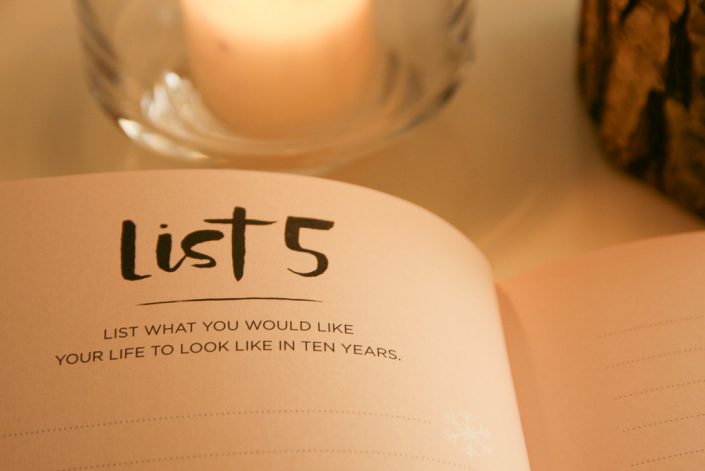 list 5
LIST WHAT YOU WOULD LIKE
YOUR LIFE TO LOOK LIKE IN TEN YEARS.